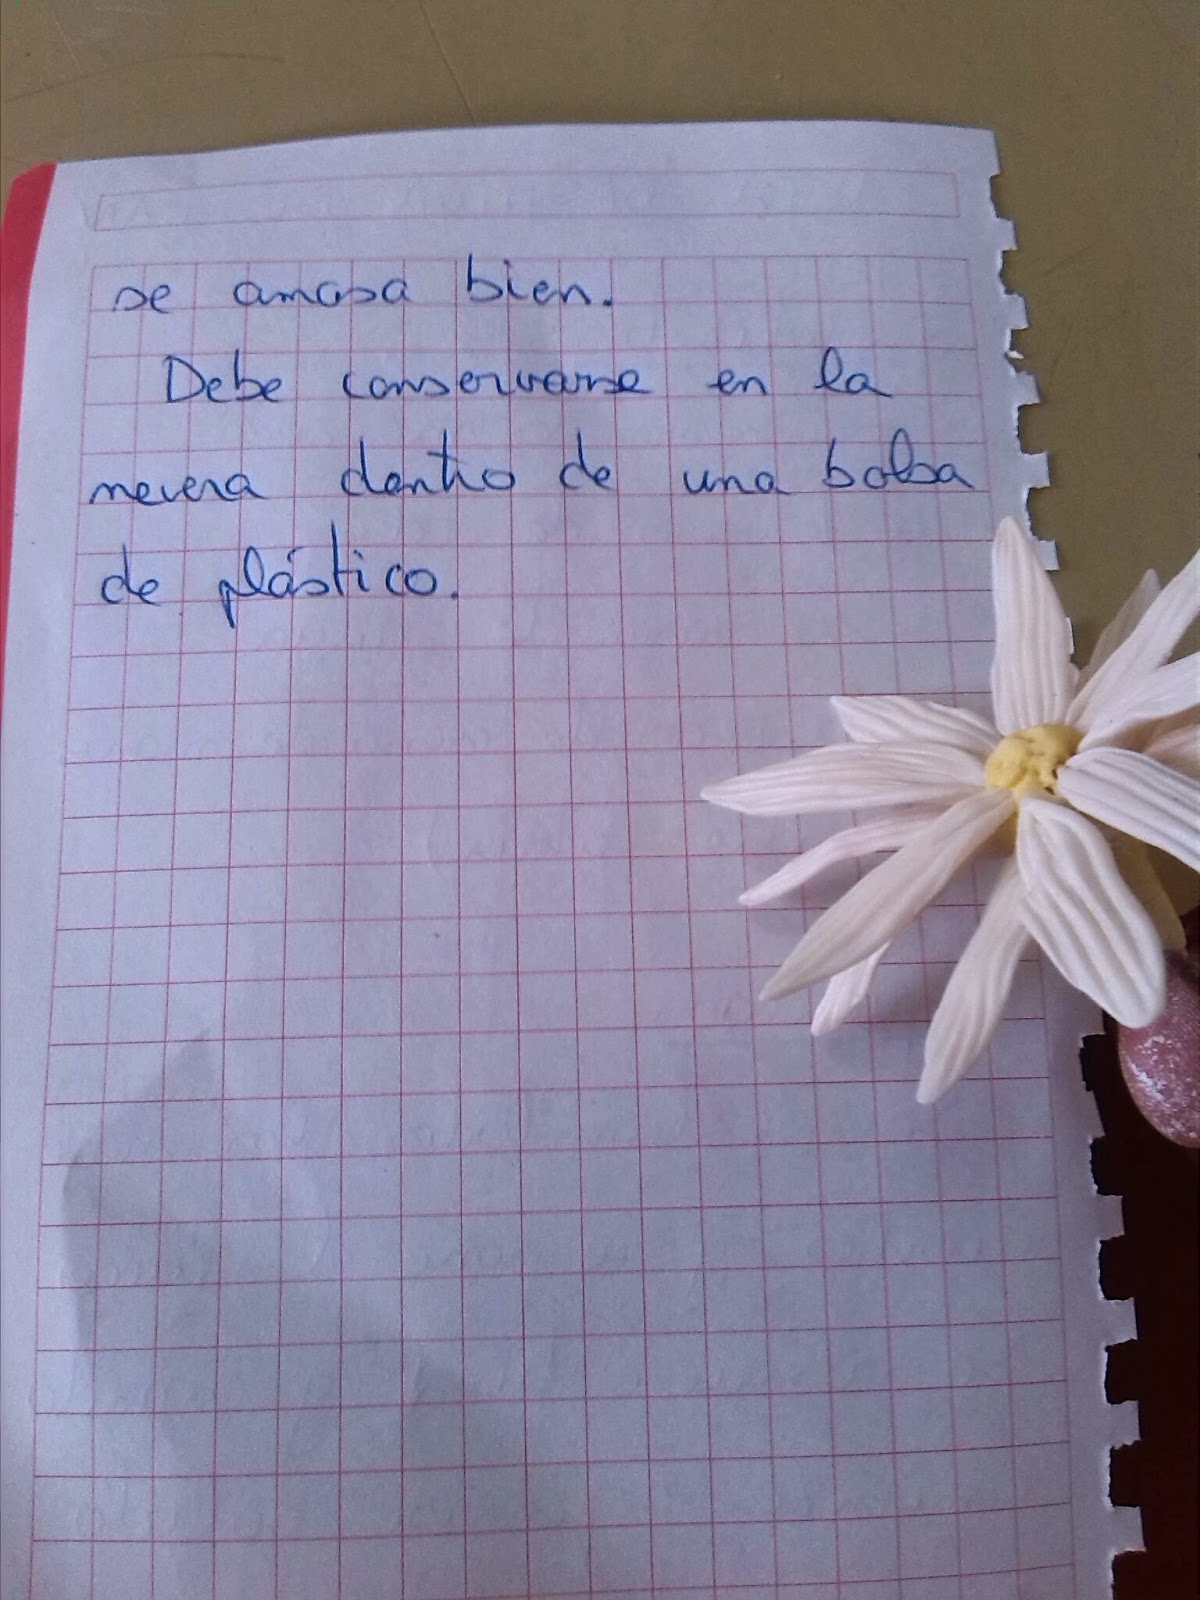 se amasa bien.
Debe conservarse en la
nevera dentro de una bolsa
de plástico.